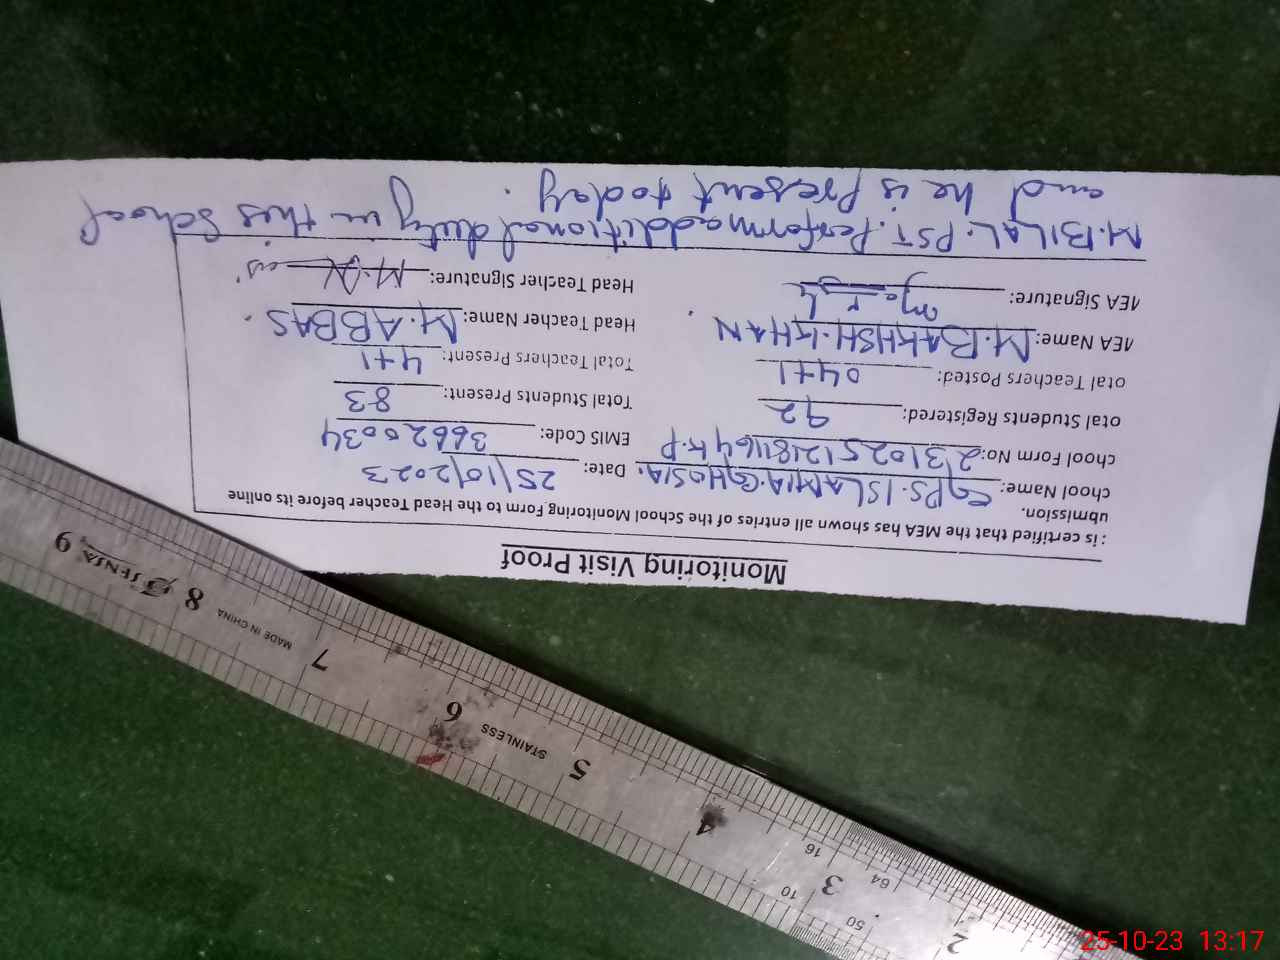 Monitoring Visit Proof
: is certified that the MEA has shown all entries of the School Monitoring Form to the Head Teacher before its online
ubmission.
chool Name: GPS. ISLAMIA. GHOSIA. Date: 25/10/2023
chool Form No: 231025121811644K.P EMIS Code: 36620034
otal Students Registered: 92 Total Students Present: 83
otal Teachers Posted: 04+1 Total Teachers Present: 4+1
MEA Name: M. BAKHSH. KHAN Head Teacher Name: M. ABBAS.
MEA Signature: Head Teacher Signature:
M. BILAL. PST. Perform additional duty in this School
and he is Present today.
2 3 4 5 6 7 8 9
.50 10 64 16
STAINLESS
MADE IN CHINA
SENSA
25-10-23 13:17